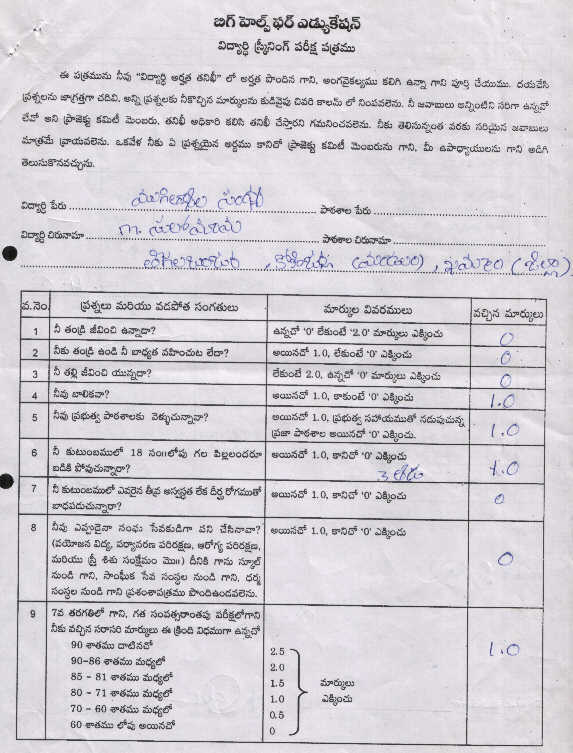 బిగ్ హెల్ప్ ఫర్ ఎడ్యుకేషన్
విద్యార్థి స్క్రీనింగ్ పరీక్ష పత్రము
ఈ పత్రమును నీవు "విద్యార్థి అర్హత తనిఖీ" లో అర్హత పొందిన గాని, అంగవైకల్యము కలిగి ఉన్నా గాని పూర్తి చేయుము. దయచేసి
ప్రశ్నలను జాగ్రత్తగా చదివి, అన్ని ప్రశ్నలకు నీకొచ్చిన మార్కులను కుడివైపు చివరి కాలమ్ లో నింపవలెను. నీ జవాబులు అన్నింటిని సరిగా ఉన్నదో
లేవో అని ప్రాజెక్టు కమిటీ మెంబరు, తనిఖీ అధికారి కలిసి తనిఖీ చేస్తారని గమనించవలెను. నీకు తెలిసినంత వరకు సరియైన జవాబులు
మాత్రమే వ్రాయవలెను. ఒకవేళ నీకు ఏ ప్రశ్నయైన అర్థము కానిచో ప్రాజెక్టు కమిటీ మెంబరును గాని, మీ ఉపాధ్యాయులను గాని అడిగి
తెలుసుకొనవచ్చును.
విద్యార్థి పేరు పాఠశాల పేరు
విద్యార్థి చిరునామా పాఠశాల చిరునామా
వ.నెం. ప్రశ్నలు మరియు వడపోత సంగతులు మార్కుల వివరములు వచ్చిన మార్కులు
1 నీ తండ్రి జీవించి ఉన్నాడా? ఉన్నదో '0' లేకుంటే '2.0' మార్కులు ఎక్కించు 0
2 నీకు తండ్రి ఉండి నీ బాధ్యత వహించుట లేదా? అయినచో 1.0, లేకుంటే '0' ఎక్కించు 0
3 నీ తల్లి జీవించి యున్నదా? లేకుంటే 2.0, ఉన్నదో '0' మార్కులు ఎక్కించు 0
4 నీవు బాలికవా? అయినచో 1.0, కాకుంటే '0' ఎక్కించు 1.0
5 నీవు ప్రభుత్వ పాఠశాలకు వెళ్ళుచున్నావా? అయినచో 1.0, ప్రభుత్వ సహాయముతో నడుపుచున్న
ప్రజా పాఠశాల అయినచో '0' ఎక్కించు. 1.0
6 నీ కుటుంబములో 18 సం॥లోపు గల పిల్లలందరూ
బడికి పోవుచున్నారా? అయినచో 1.0, కానిచో '0' ఎక్కించు 1.0
7 నీ కుటుంబములో ఎవరైన తీవ్ర అస్వస్థత లేక దీర్ఘ రోగముతో
బాధపడుచున్నారా? అయినచో 1.0, కానిచో '0' ఎక్కించు 0
8 నీవు ఎప్పుడైనా సంఘ సేవకుడిగా పని చేసినావా?
(వయోజన విద్య, పర్యావరణ పరిరక్షణ, ఆరోగ్య పరిరక్షణ,
మరియు స్త్రీ శిశు సంక్షేమం మొ॥) దీనికి గాను స్కూల్
నుండి గాని, సాంఘీక సేవ సంస్థల నుండి గాని, ధర్మ
సంస్థల నుండి గాని ప్రశంశాపత్రము పొందిఉండవలెను. అయినచో 1.0, కానిచో '0' ఎక్కించు 0
9 7వ తరగతిలో గాని, గత సంవత్సరాంతపు పరీక్షలోగాని
నీకు వచ్చిన సరాసరి మార్కులు ఈ క్రింది విధముగా ఉన్నదో 1.0
90 శాతము దాటినచో 2.5
90-86 శాతము మధ్యలో 2.0
85 - 81 శాతము మధ్యలో 1.5 మార్కులు
80 - 71 శాతము మధ్యలో 1.0 ఎక్కించు
70 - 60 శాతము మధ్యలో 0.5
60 శాతము లోపు అయినచో 0